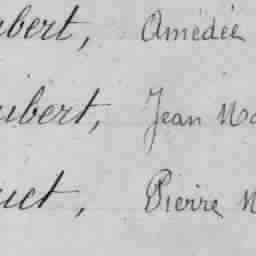 bert, Amédée
ibert, Jean
uet, Pierre